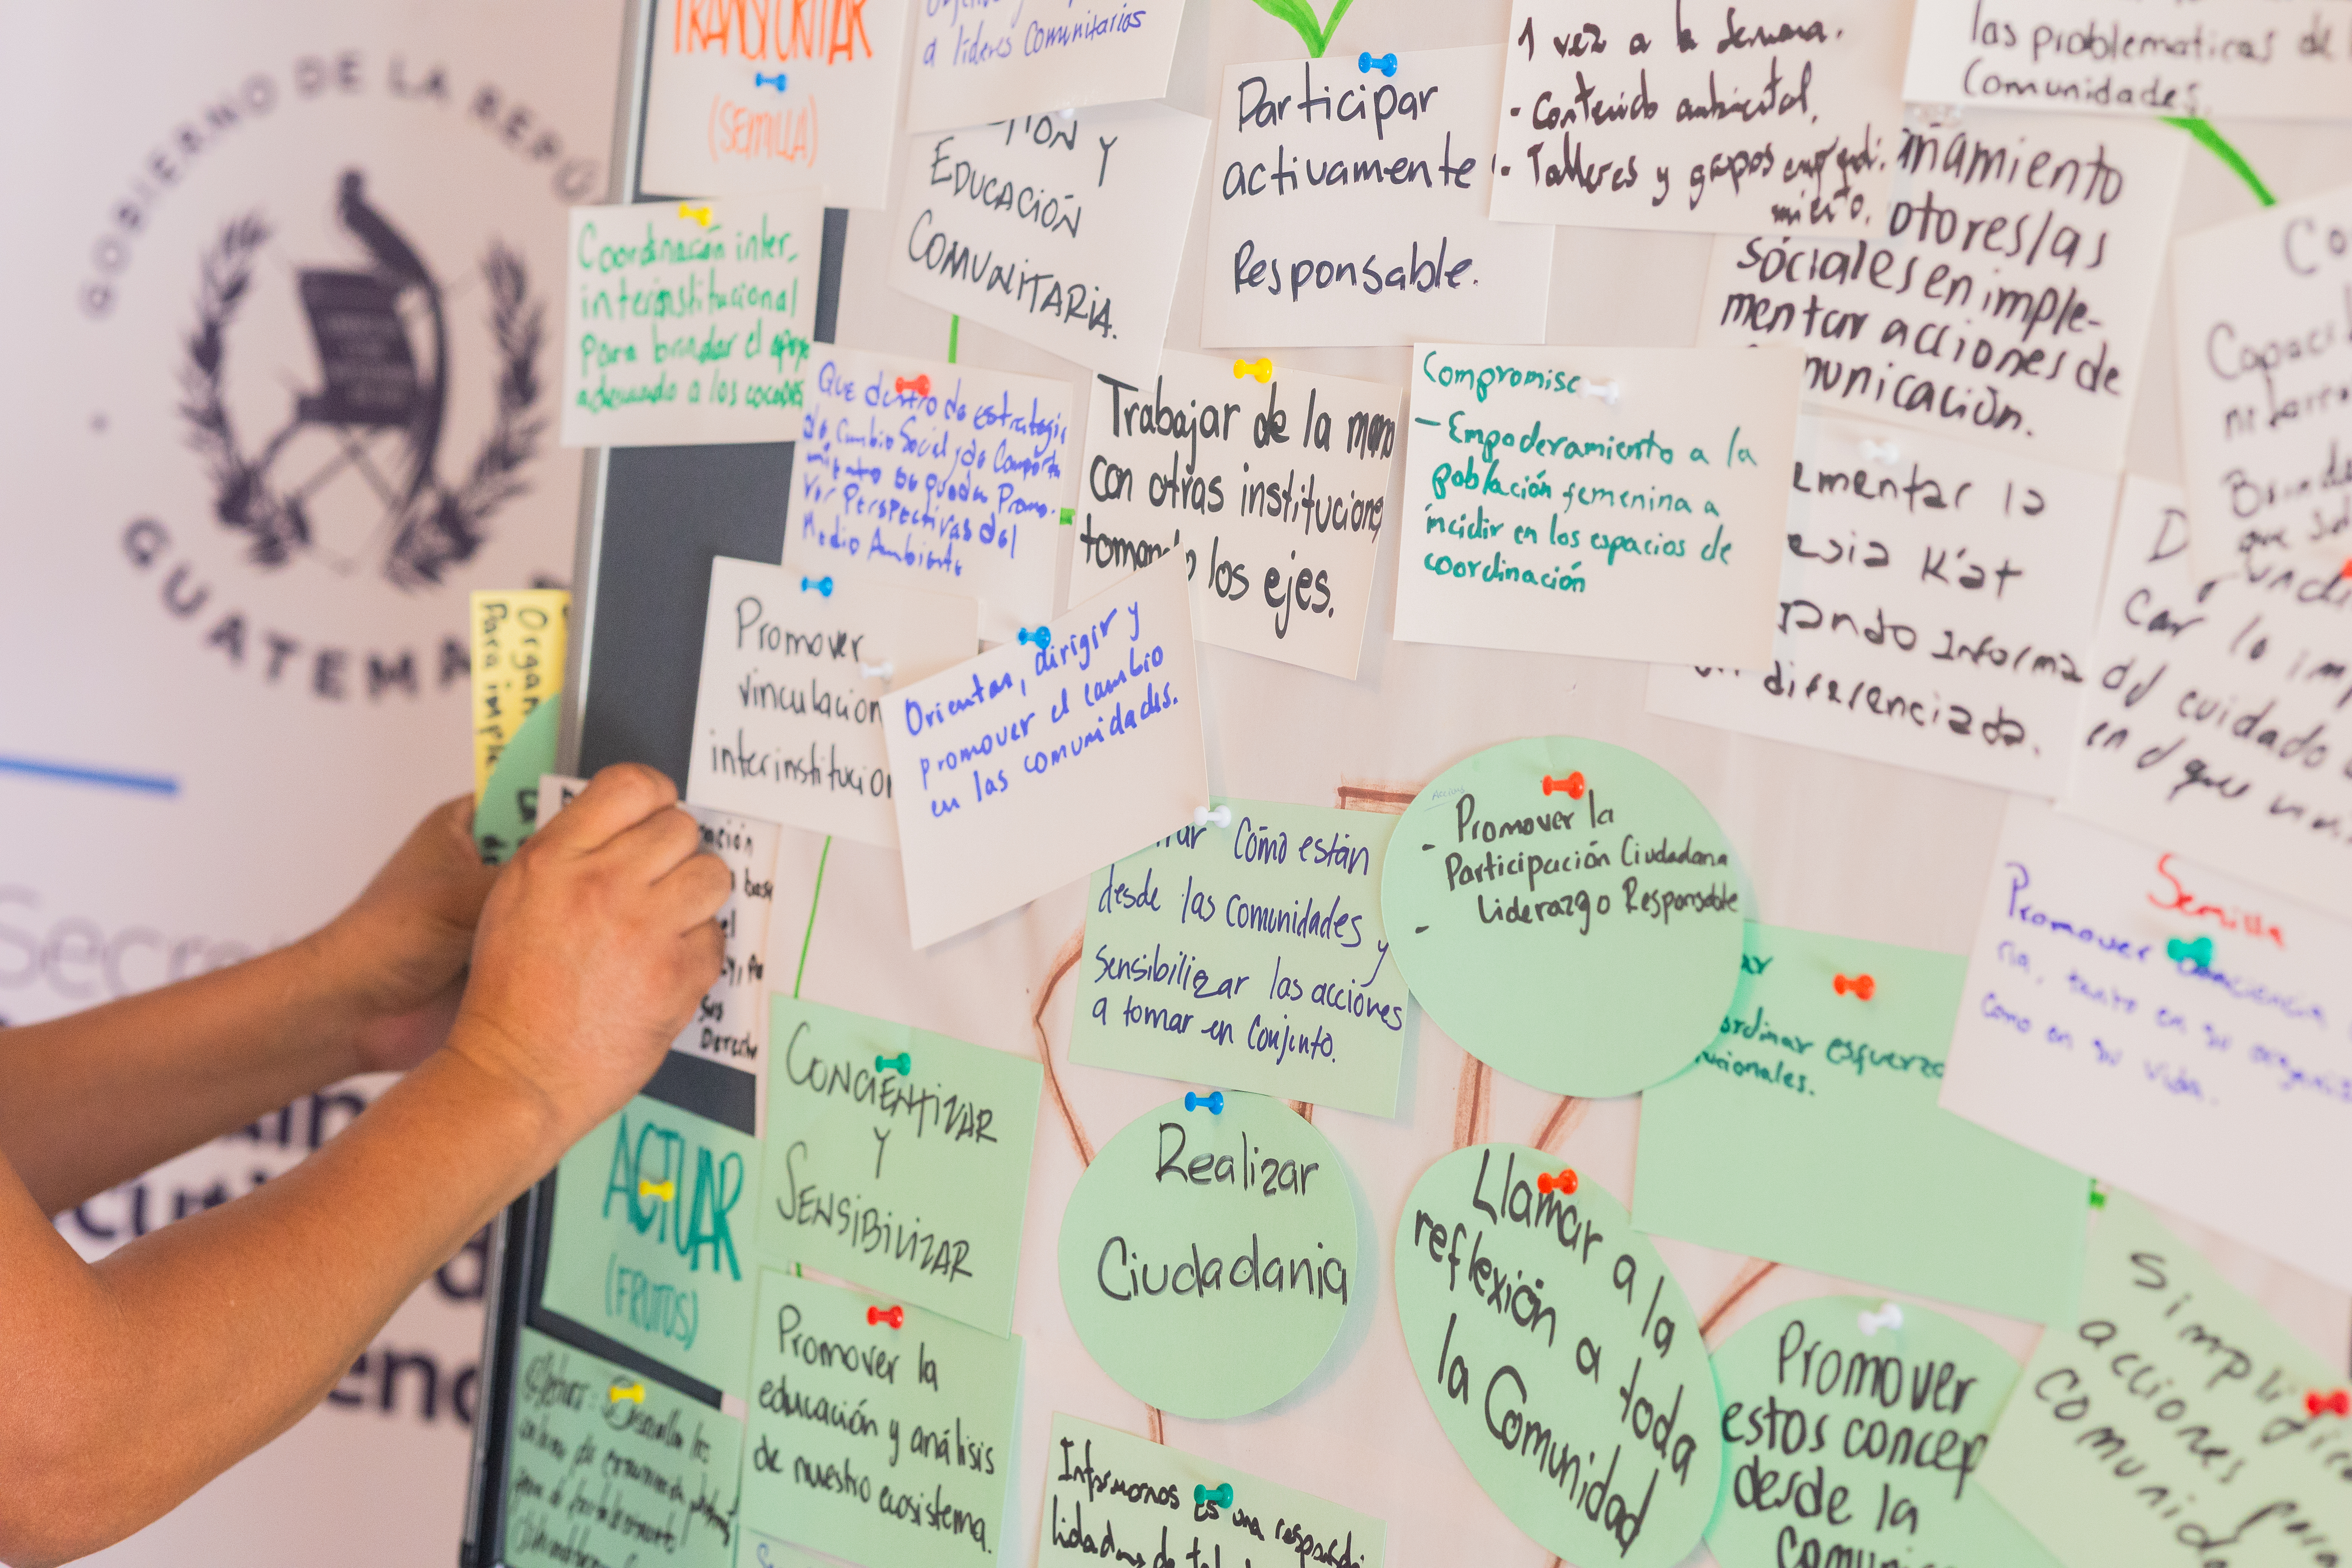 GOBIERNO DE LA REPÚ
GUATEMA
Secre
TRANSFORMAR
(SEMILLA)
a líderes Comunitarios
EDUCACIÓN Y
COMUNITARIA.
Participar
activamente
Responsable.
1 vez a la semana.
- Contenido ambiental,
- Talleres y grupos
las problematicas de
Comunidades,
ñamiento
otores/as
sociales en imple-
mentar acciones de
municación.
Coordinación inter-
interinstitucional
para brindar el apoyo
adecuado a los cocodes
Que dentro de estrategia
de Cambio Social y de Comporta
miento se puedan Promo-
ver Perspectivas del
Medio Ambiente
Trabajar de la mano
con otras institucione
los ejes.
Compromiso
- Empoderamiento a la
población femenina a
incidir en los espacios de
coordinación
ementar la
esia K'at
ando Informa
diferenciada.
Capaci
Brinda
que
car lo imp
del cuidado
en el que
Organ
Para imple
Promover
vinculacion
interinstitucion
Orientar, dirigir y
promover el cambio
en las comunidades.
ación
base
el
sus
Derech
Cómo están
desde las Comunidades y
Sensibilizar las acciones
a tomar en Conjunto.
Accions
- Promover la
Participación Ciudadana
Liderazgo Responsable
-
ar
ordinar esfuerzo
ucionales.
Semilla
Promover conciencia
ria, tanto en su organiza
como en su vida.
ACTUAR
(FRUTOS)
CONCIENTIZAR
Y
SENSIBILIZAR
Realizar
Ciudadania
Llamar a la
reflexión a toda
la Comunidad
Promover la
educación y análisis
de nuestro ecosistema.
Informonos es una responsabi
Promover
estos concep
desde la
comunic
Simplificar
acciones para
comunid